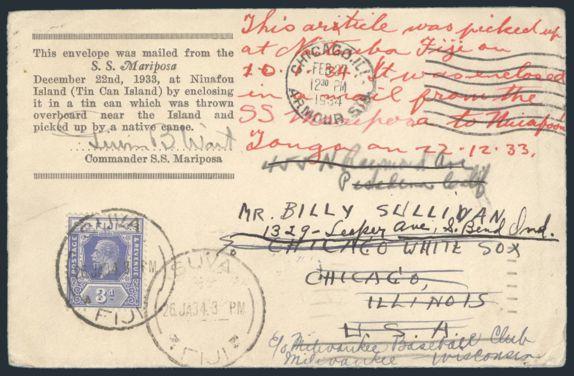 This envelope was mailed from the
S. S. Mariposa
December 22nd, 1933, at Niuafou
Island (Tin Can Island) by enclosing
it in a tin can which was thrown
overboard near the Island and
picked up by a native canoe.
Commander S.S. Mariposa
This article was picked up
at Fiji on
10 34. It was enclosed
in a mail from the
SS Mariposa to
Tonga on 22.12.33.
CHICAGO, ILL.
FEB
12 30 PM
1934
ARMOUR STA.
Pasadena Calif
MR. BILLY SULLIVAN
1329- Leeper Ave, S. Bend Ind.
CHICAGO WHITE SOX
CHICAGO,
ILLINOIS
U. S. A
c/o Milwaukee Baseball Club
Milwaukee Wisconsin
SUVA
JA34 PM
FIJI
POSTAGE
& REVENUE
3d
SUVA
26 JA34.3 PM
FIJI